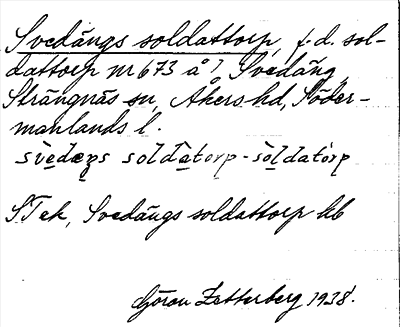 Svedängs soldattorp, f.d. sol-
dattorp nr 673 å Svedäng,
Strängnäs sn, Åkers hd, Söder-
manlands l.
svedæŋs soldatorp - soldatorp
STek, Svedängs soldattorp kb
Göran Zetterberg 1938.